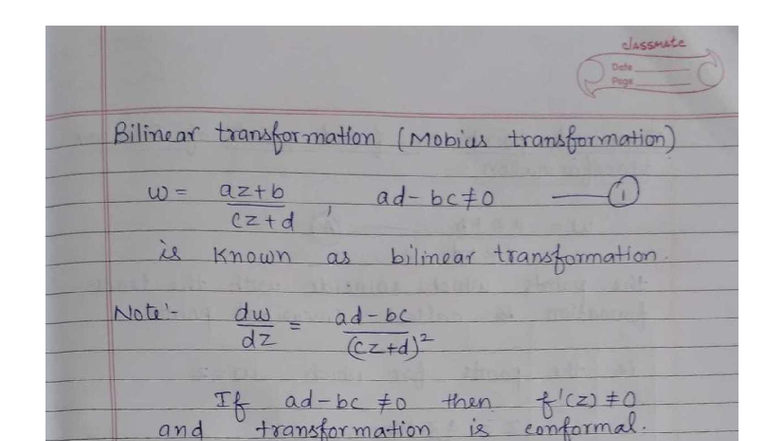 classmate
Date
Page
Bilinear transformation (Mobius transformation)
w = az+b / cz+d , ad-bc≠0 —— ①
is known as bilinear transformation.
Note:- dw/dz = ad-bc / (cz+d)²
If ad-bc ≠0 then f'(z) ≠0
and transformation is conformal.